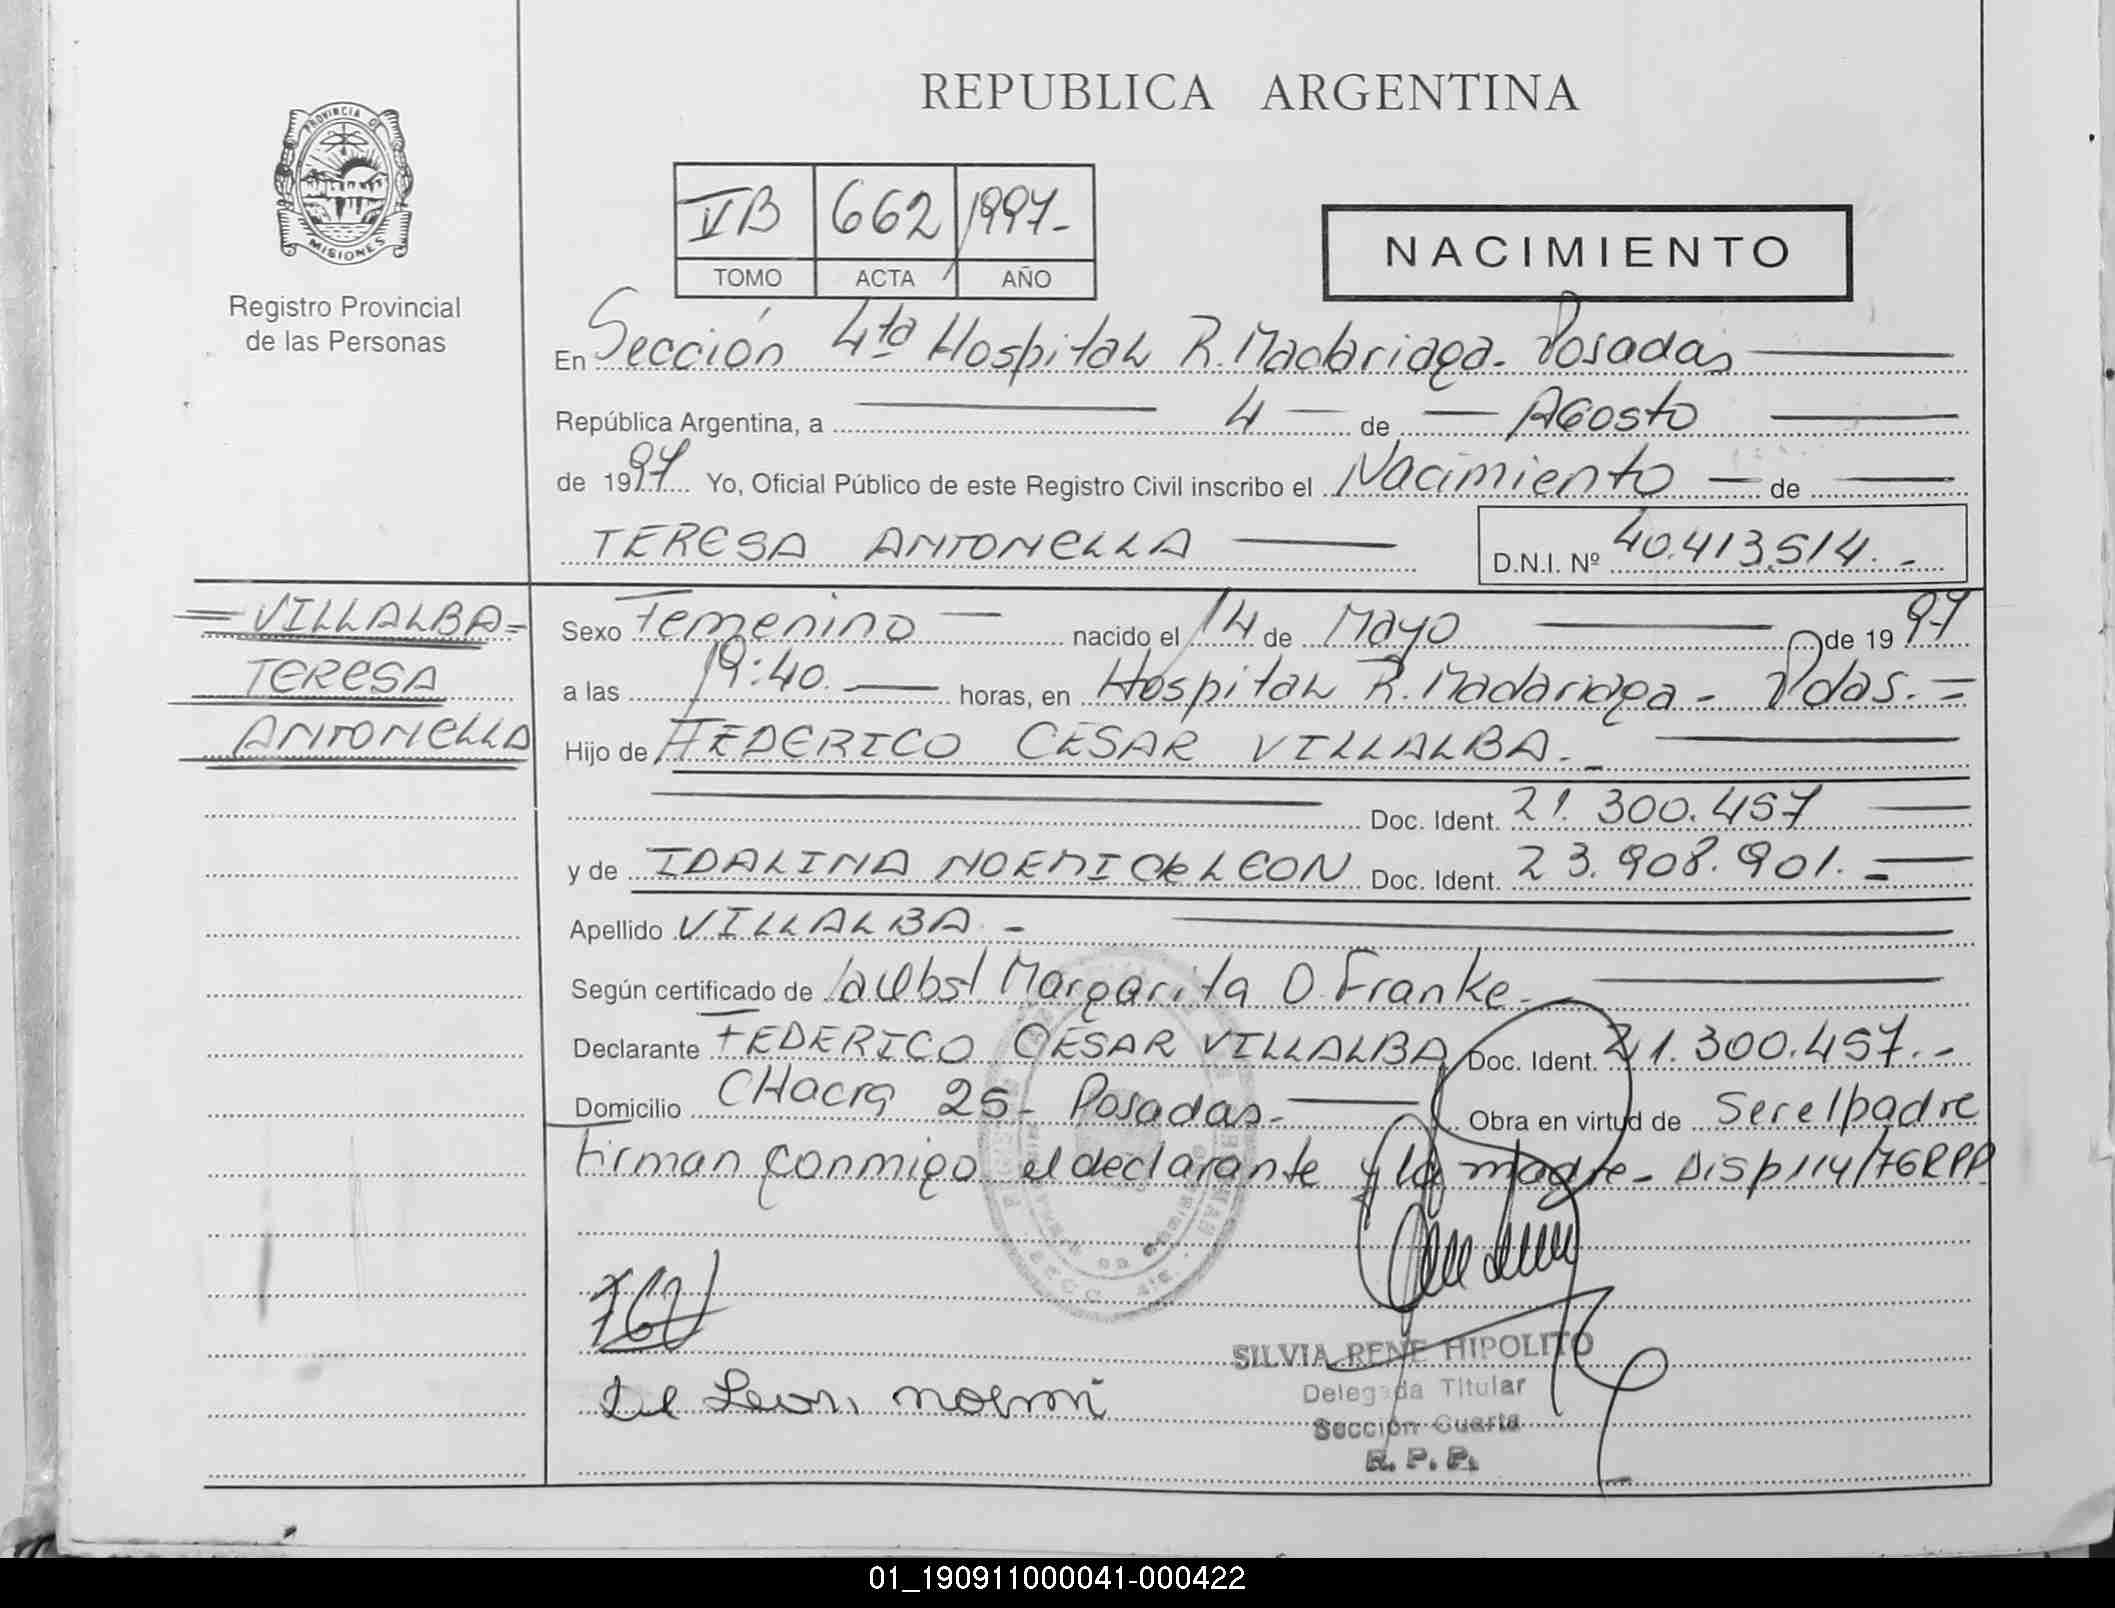 REPUBLICA ARGENTINA
PROVINCIA DE
MISIONES
Registro Provincial
de las Personas
VB 662 1997-
TOMO ACTA AÑO
NACIMIENTO
En Sección 4ta Hospital R. Madariaga. Posadas
República Argentina, a 4 de Agosto
de 1997 Yo, Oficial Público de este Registro Civil inscribo el Nacimiento de
TERESA ANTONELLA
D.N.I. Nº 40.413.514.-
=VILLALBA=
TERESA
ANTONELLA
Sexo Femenino nacido el 14 de Mayo de 1997
a las 19:40. horas, en Hospital R. Madariaga - Pdas.=
Hijo de FEDERICO CESAR VILLALBA.-
Doc. Ident. 21.300.457
y de IDALINA NOEMI de LEON Doc. Ident. 23.908.901.=
Apellido VILLALBA.-
Según certificado de la Obst Margarita O. Franke.
Declarante FEDERICO CESAR VILLALBA Doc. Ident. 21.300.457.-
Domicilio CHacra 25- Posadas- Obra en virtud de Ser el padre
Firman conmigo el declarante y la madre- Disp 114/76 RPP
De Leon noemi
SILVIA RENE HIPOLITO
Delegada Titular
Sección Cuarta
R. P. P.
01_190911000041-000422